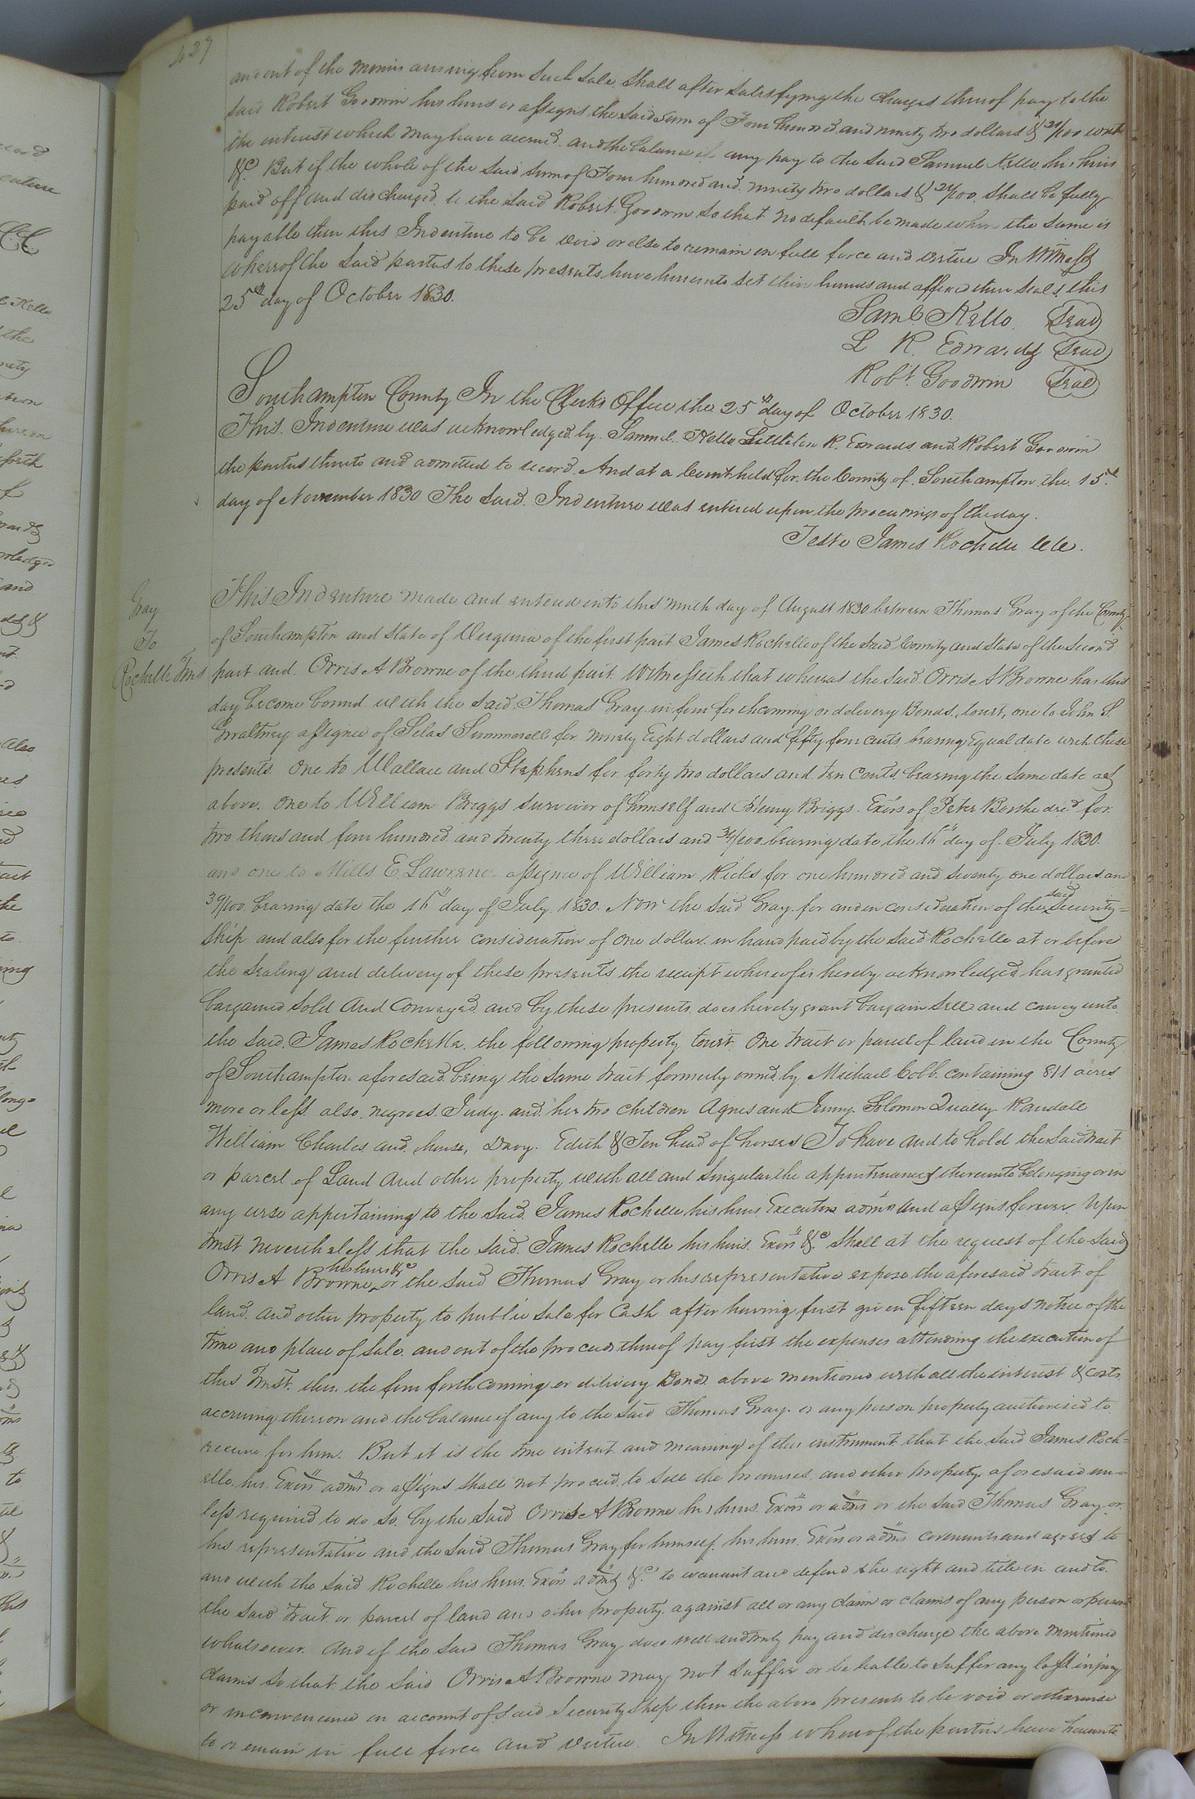 427
and out of the monies arising from such sale, shall after satisfying the charges thereof pay to the
said Robert Goodwin his heirs or assigns the said sum of Four hundred and ninety two dollars & /100 with
the interest which may have accrued. and the balance if any pay to the said Samuel Kello, his heirs
&c But if the whole of the said sum of Four hundred and ninety two dollars & /100. shall be fully
paid off and discharged to the said Robert Goodwin so that no default be made when the same is
payable then this Indenture to be void or else to remain in full force and virtue In Witness
whereof the said parties to these presents, have hereunto set their hands and affixed their seals this
25th day of October 1830.
Saml. Kello. Seal
L R. Edwards Seal
Robt. Goodwin Seal
Southampton County In the Clerks Office the 25th day of October 1830.
This Indenture was acknowledged by Samuel Kello Littleton R. Edwards and Robert Goodwin
the parties thereto and admitted to record. And at a Court held for the County of Southampton the 15th
day of November 1830 The said Indenture was entered upon the proceedings of the day.
Teste James Rochelle ClC.
Gray
To
Rochelle
This Indenture made and entered into this ninth day of August 1830 between Thomas Gray of the County
of Southampton and State of Virginia of the first part James Rochelle of the said County and State of the second
part and Orris A Browne of the third part. Witnesseth that whereas the said Orris A Browne has this
day become bound with the said Thomas Gray in four forthcoming or delivery Bonds, towit, one to John S.
Gwaltney assignee of Silas Summerell for ninety Eight dollars and fifty four cents bearing Equal date with these
presents One to Wallace and Stephens for forty two dollars and ten cents bearing the same date as
above. One to William Briggs survivor of himself and Henry Briggs Exors of Peter Booth decd for
two thousand four hundred and twenty three dollars and /100 bearing date the 16th day of July 1830
and one to Mills E Lawrence assignee of William Ricks for one hundred and seventy one dollars and
39/100 bearing date the 16th day of July 1830. Now the said Gray for and in consideration of the said security=
ship and also for the further consideration of one dollar in hand paid by the said Rochelle at or before
the sealing and delivery of these presents the receipt whereof is hereby acknowledged has granted
bargained sold and conveyed and by these presents does hereby grant bargain sell and convey unto
the said James Rochelle, the following property towit: One tract or parcel of land in the County
of Southampton aforesaid being the same tract formerly owned by Michael Cobb containing 811 acres
more or less also, negroes Judy and her two children Agnes and Jenny Solomon Randall
William Charles and Davy. Edith & Ten head of horses To have and to hold the said tract
or parcel of Land and other property with all and singular the appurtenances thereunto belonging or in
any wise appertaining to the said James Rochelle, his heirs Executors admrs and assigns forever. Upon
trust nevertheless that the said James Rochelle his heirs Exors &c. shall at the request of the said
Orris A Browne, his heirs &c or the said Thomas Gray or his representative expose the aforesaid tract of
land and other property to public sale for Cash after having first given fifteen days notice of the
time and place of sale. and out of the proceeds thereof pay first the expenses attending the execution of
this Trust, then the four forthcoming or delivery Bonds above mentioned with all the interest & costs
accruing thereon and the balance if any to the said Thomas Gray. or any person properly authorised to
receive for him. But it is the true intent and meaning of this instrument that the said James Roch=
elle, his Exors admrs or assigns shall not proceed to sell the premises and other property aforesaid un=
less required to do so by the said Orris A Browne his heirs Exors or admrs or the said Thomas Gray or
his representative and the said Thomas Gray for himself his heirs Exors or admrs covenants and agrees to
and with the said Rochelle his heirs Exors admrs &c to warrant and defend the right and title in and to
the said tract or parcel of land and other property against all or any claim or claims of any person or persons
whatsoever. And if the said Thomas Gray does well and truly pay and discharge the above mentioned
claims so that the said Orris A Browne may not suffer or be liable to suffer any loss injury
or inconvenience on account of said Security Ship then the above presents to be void or otherwise
to remain in full force and virtue. In Witness whereof the parties have hereunto